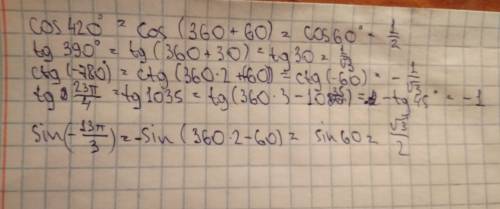 cos 420° = cos (360 + 60) = cos 60° = 1/2
tg 390° = tg (360 + 30) = tg 30 = 1/√3
ctg (-780) = ctg (360·2 + 60) = ctg (-60) = - 1/√3
tg 23π/4 = tg 1035 = tg (360·3 - 10 = - tg 45° = -1
sin (-13π/3) = -sin (360·2 - 60) = sin 60 = √3/2